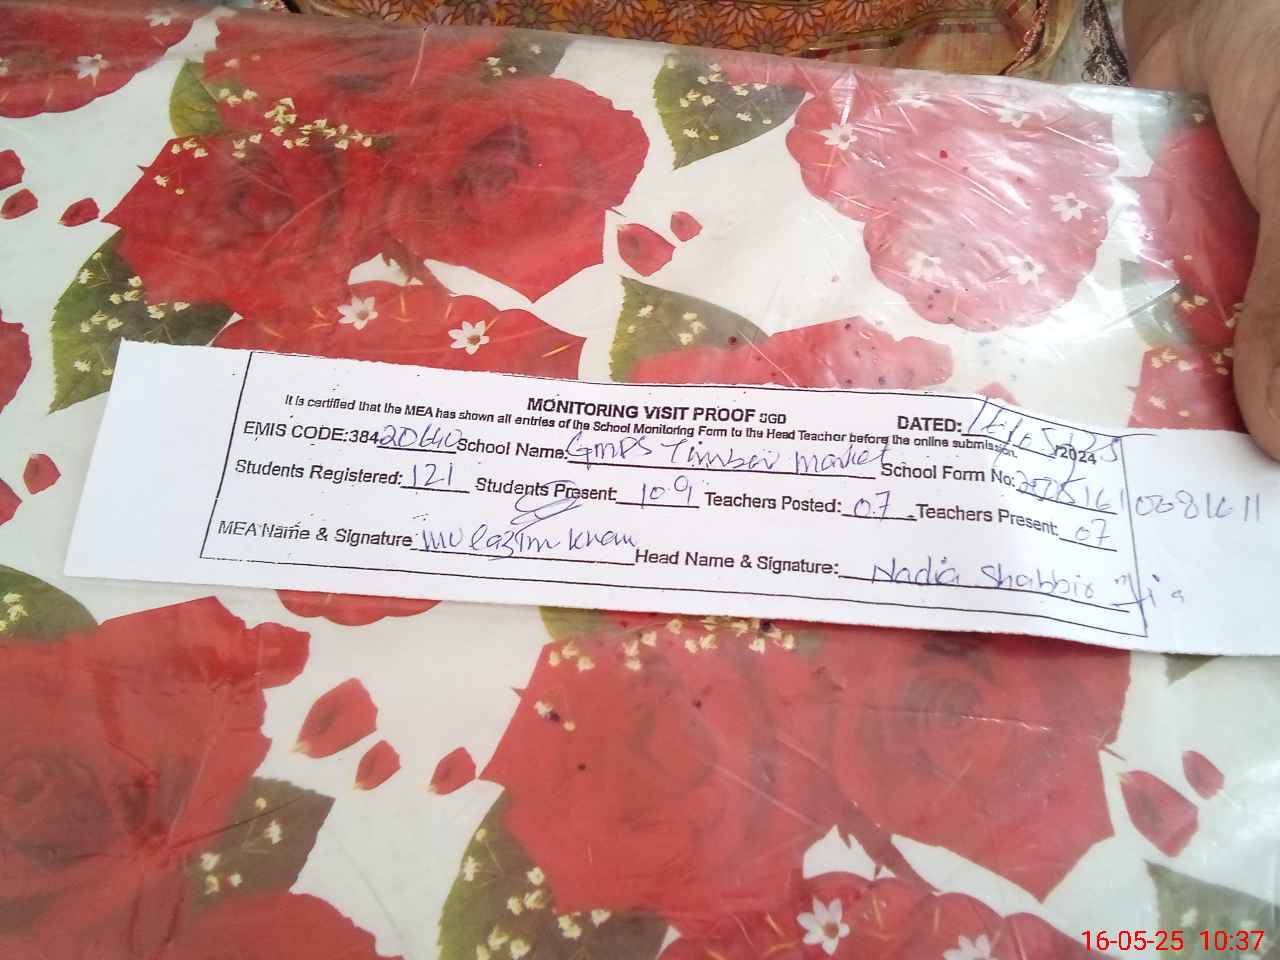 MONITORING VISIT PROOF SGD DATED: 16/05/2025 /2024
It is certified that the MEA has shown all entries of the School Monitoring Form to the Head Teacher before the online submission.
EMIS CODE:384 20640 School Name: GMPS Timber Market School Form No:
Students Registered: 121 Students Present: 109 Teachers Posted: 07 Teachers Present: 07
MEA Name & Signature Mulazim Khan Head Name & Signature: Nadia Shabbir
16-05-25 10:37